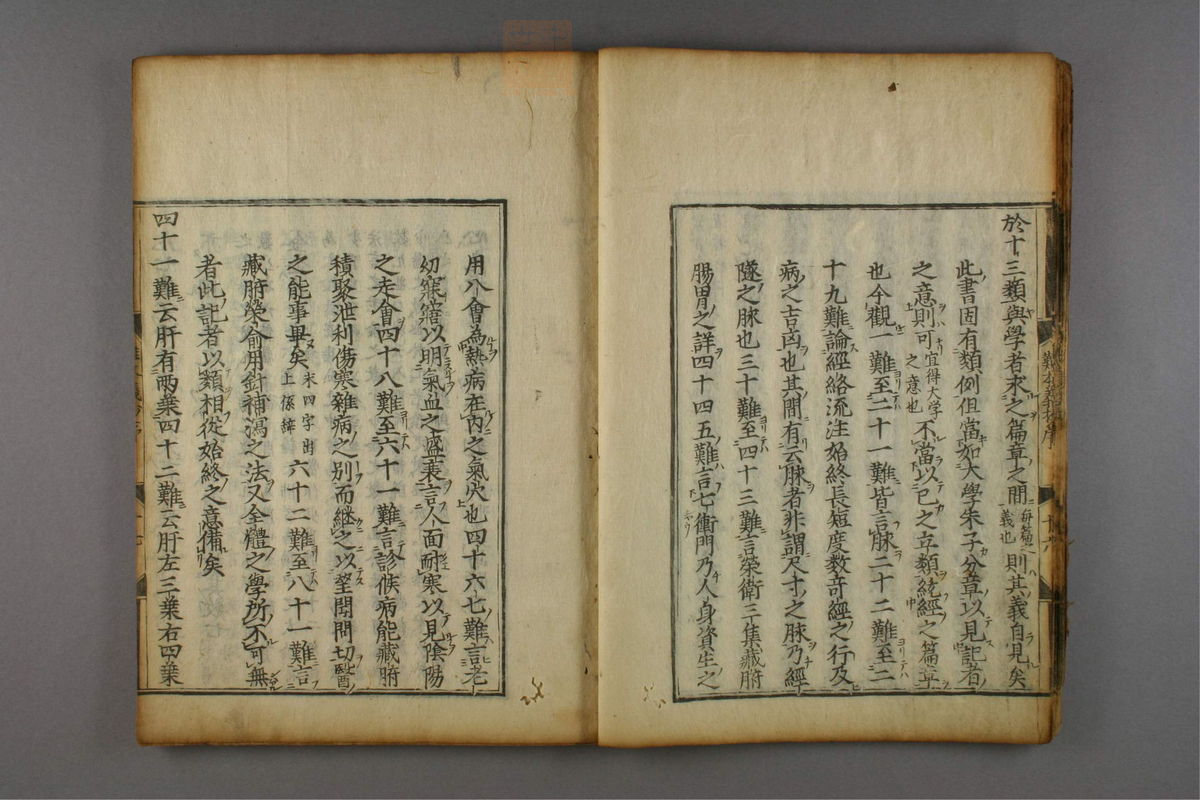 於十三類與學者求之篇章之間每篇之義也則其義自見矣
此書固有類例但當如大學朱子分章以見記者
之意則可宜得大学之意也不當以已之立類統經之篇章
也今觀一難至二十一難皆言脉二十二難至二
十九難論經絡流注始終長短度数奇經之行及
病之吉凶也其間有云脉者非謂尺寸之脉乃經
隧之脉也三十難至四十三難言榮衛三焦藏腑
腸胃之詳四十四五難言七衝門乃人身資生之
用八會為熱病在内之氣穴也四十六七難言老
幼寐寤以明氣血之盛衰言人面耐寒以見陰陽
之走會四十八難至六十一難言診候病能藏腑
積聚泄利傷寒雜病之別而継之以望聞問切毉
之能事畢矣末四字出上係辞六十二難至八十一難言
藏腑榮俞用針補瀉之法又全體之學所不可無
者此記者以類相從始終之意備矣
四十一難云肝有兩葉四十二難云肝左三葉右四葉